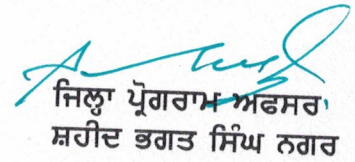 ਜਿਲ੍ਹਾ ਪ੍ਰੋਗਰਾਮ ਅਫਸਰ
ਸ਼ਹੀਦ ਭਗਤ ਸਿੰਘ ਨਗਰ